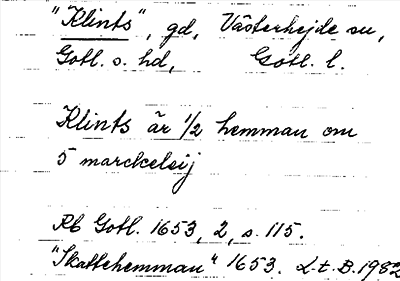 "Klints", gd, Västerhejde sn,
Gotl. s. hd, Gotl. l.
Klints är 1/2 hemman om
5 marckeleij
Rb Gotl. 1653, 2, s. 115.
"Skattehemman" 1653. L.t.B. 1982